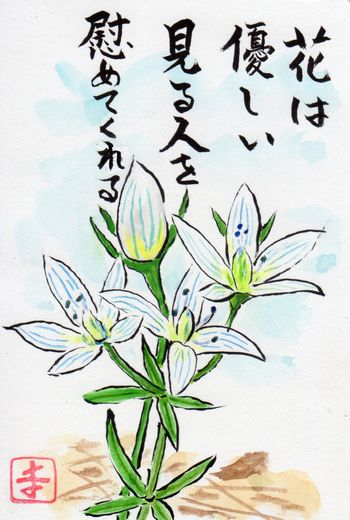 花は
優しい
見る人を
慰めてくれる